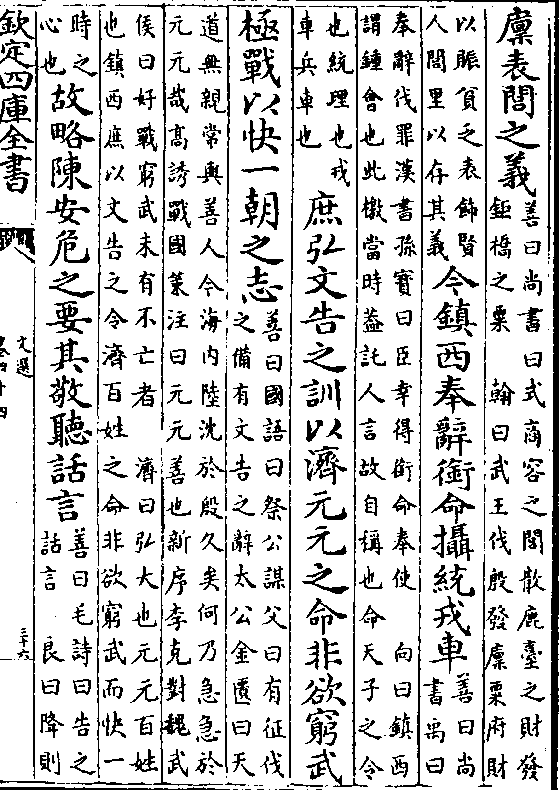 廩表閭之義善曰尚書曰式商容之閭散鹿臺之財發
鉅橋之粟　翰曰武王伐殷發廩粟府財
以賑貧乏表飾賢
人閭里以存其義今鎮西奉辭銜命攝統戎車善曰尚
書禹曰
奉辭伐罪漢書孫寶曰臣幸得銜命奉使　向曰鎮西
謂鍾會也此檄當時葢託人言故自稱也命天子之令
也統理也戎
車兵車也　庶弘文告之訓以濟元元之命非欲窮武
極戰以快一朝之志善曰國語曰祭公謀父曰有征伐
之備有文告之辭太公金匱曰天
道無親常與善人今海內陸沈於殷久矣何乃急急於
元元哉高誘戰國策注曰元元善也新序李克對魏武
侯曰好戰窮武未有不亡者　濟曰弘大也元元百姓
也鎮西庶以文告之令濟百姓之命非欲窮武而快一
時之
心也故略陳安危之要其敬聽話言善曰毛詩曰告之
話言　良曰降則
欽定四庫全書
文選
卷四十四
三十六